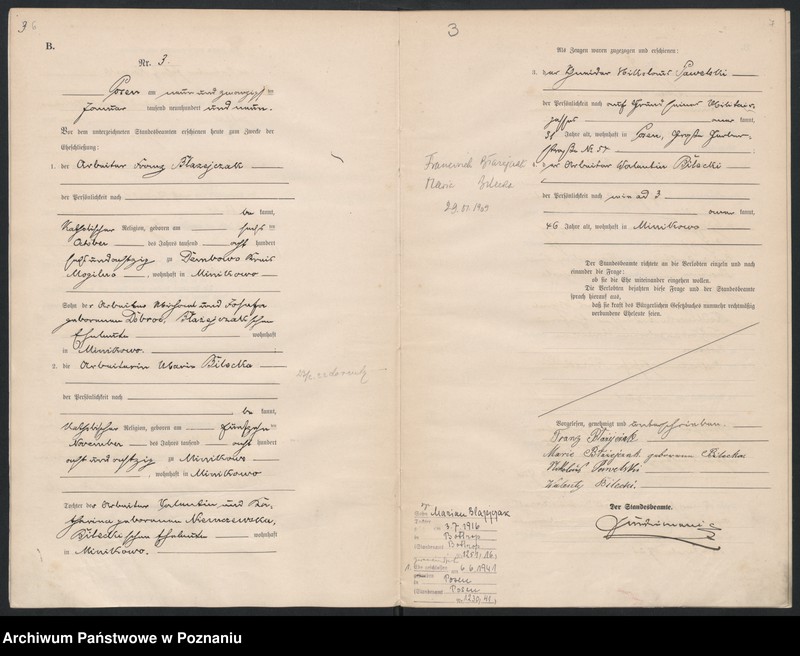 3
6
B.
Nr. 3.
Posen am neun und zwanzigsten
Januar tausend neunhundert und neun.
Vor dem unterzeichneten Standesbeamten erschienen heute zum Zwecke der
Eheschließung:
1. der Arbeiter Franz Błazejczak
der Persönlichkeit nach
be kannt,
katholischer Religion, geboren am
October des Jahres tausend acht hundert
sechsundachtzig zu Dembowo Kreis
Mogilno, wohnhaft in Minikowo
Sohn der Arbeiter Michael und Josefa
geborenen Dobros, Błazejczakschen
Eheleute wohnhaft
in Minikowo.
2. die Arbeiterin Maria Bilecka
der Persönlichkeit nach
be kannt,
katholischer Religion, geboren am fünfzehnten
November des Jahres tausend acht hundert
acht und achtzig zu Minikowo
, wohnhaft in Minikowo
Tochter der Arbeiter Valentin und Ka-
tharina geborenen Niemczewska,
Bileckischen Eheleute wohnhaft
in Minikowo.
3
7
Als Zeugen waren zugezogen und erschienen:
3. der Schneider Nikolaus Pawelski
der Persönlichkeit nach auf Grund seines Militair-
passes aner kannt,
Jahre alt, wohnhaft in Posen, Große Gerber-
straße Nr. 57
4. der Arbeiter Valentin Bilecki
der Persönlichkeit nach wie ad 2
kannt,
46 Jahre alt, wohnhaft in Minikowo
Der Standesbeamte richtete an die Verlobten einzeln und nach
einander die Frage:
ob sie die Ehe miteinander eingehen wollen.
Die Verlobten bejahten diese Frage und der Standesbeamte
sprach hierauf aus,
daß sie kraft des Bürgerlichen Gesetzbuches nunmehr rechtmäßig
verbundene Eheleute seien.
Vorgelesen, genehmigt und unterschrieben.
Franz Błażejczak
Marie Błażejczak geborene Bilecka
Nikolaus Pawelski
Walenty Bilecki.
Der Standesbeamte.
Marian Blazejczak
3.7.1916
Bottrop
Bottrop
1257/16
Ehe geschlossen am 6.6.1941
Posen
Posen
Nr. 1230/41
Archiwum Państwowe w Poznaniu